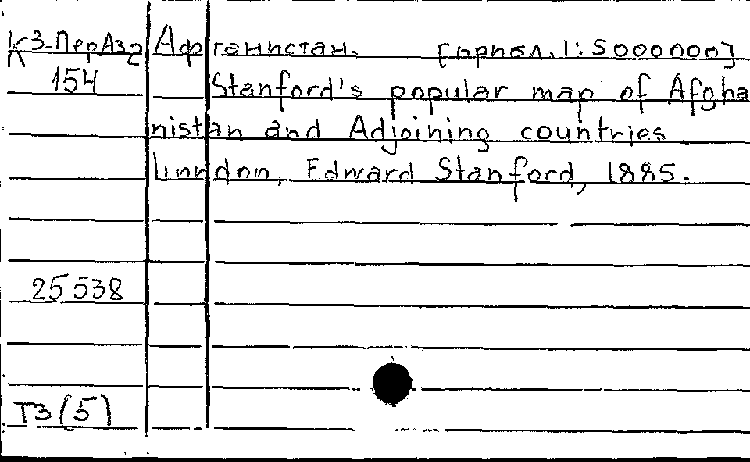 К3-ПерАз2 Афганистан. [горизол.1:5000000]
154 Stanford's popular map of Afgha
nistan and Adjoining countries
London, Edward Stanford, 1885.
25538
Т3(5)